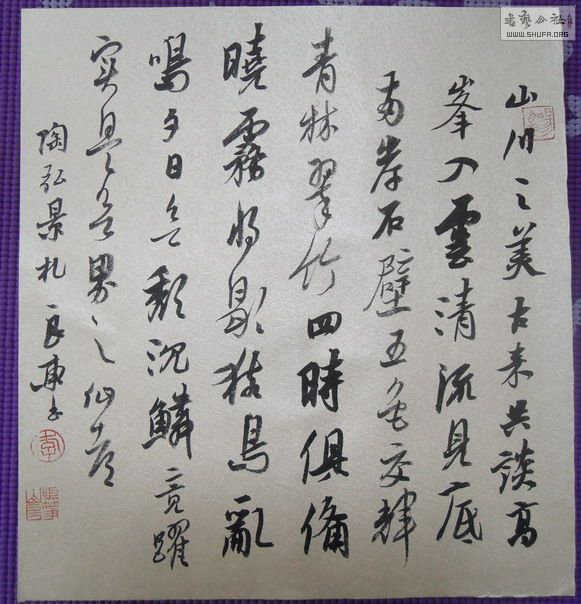 書藝公社
WWW.SHUFA.ORG
山川之美古来共談高
峯入雲清流見底
两岸石壁五色交輝
青林翠竹四時俱備
曉霧将歇猿鳥亂
鳴夕日欲頹沉鱗竞躍
实是欲界之仙都
陶弘景札